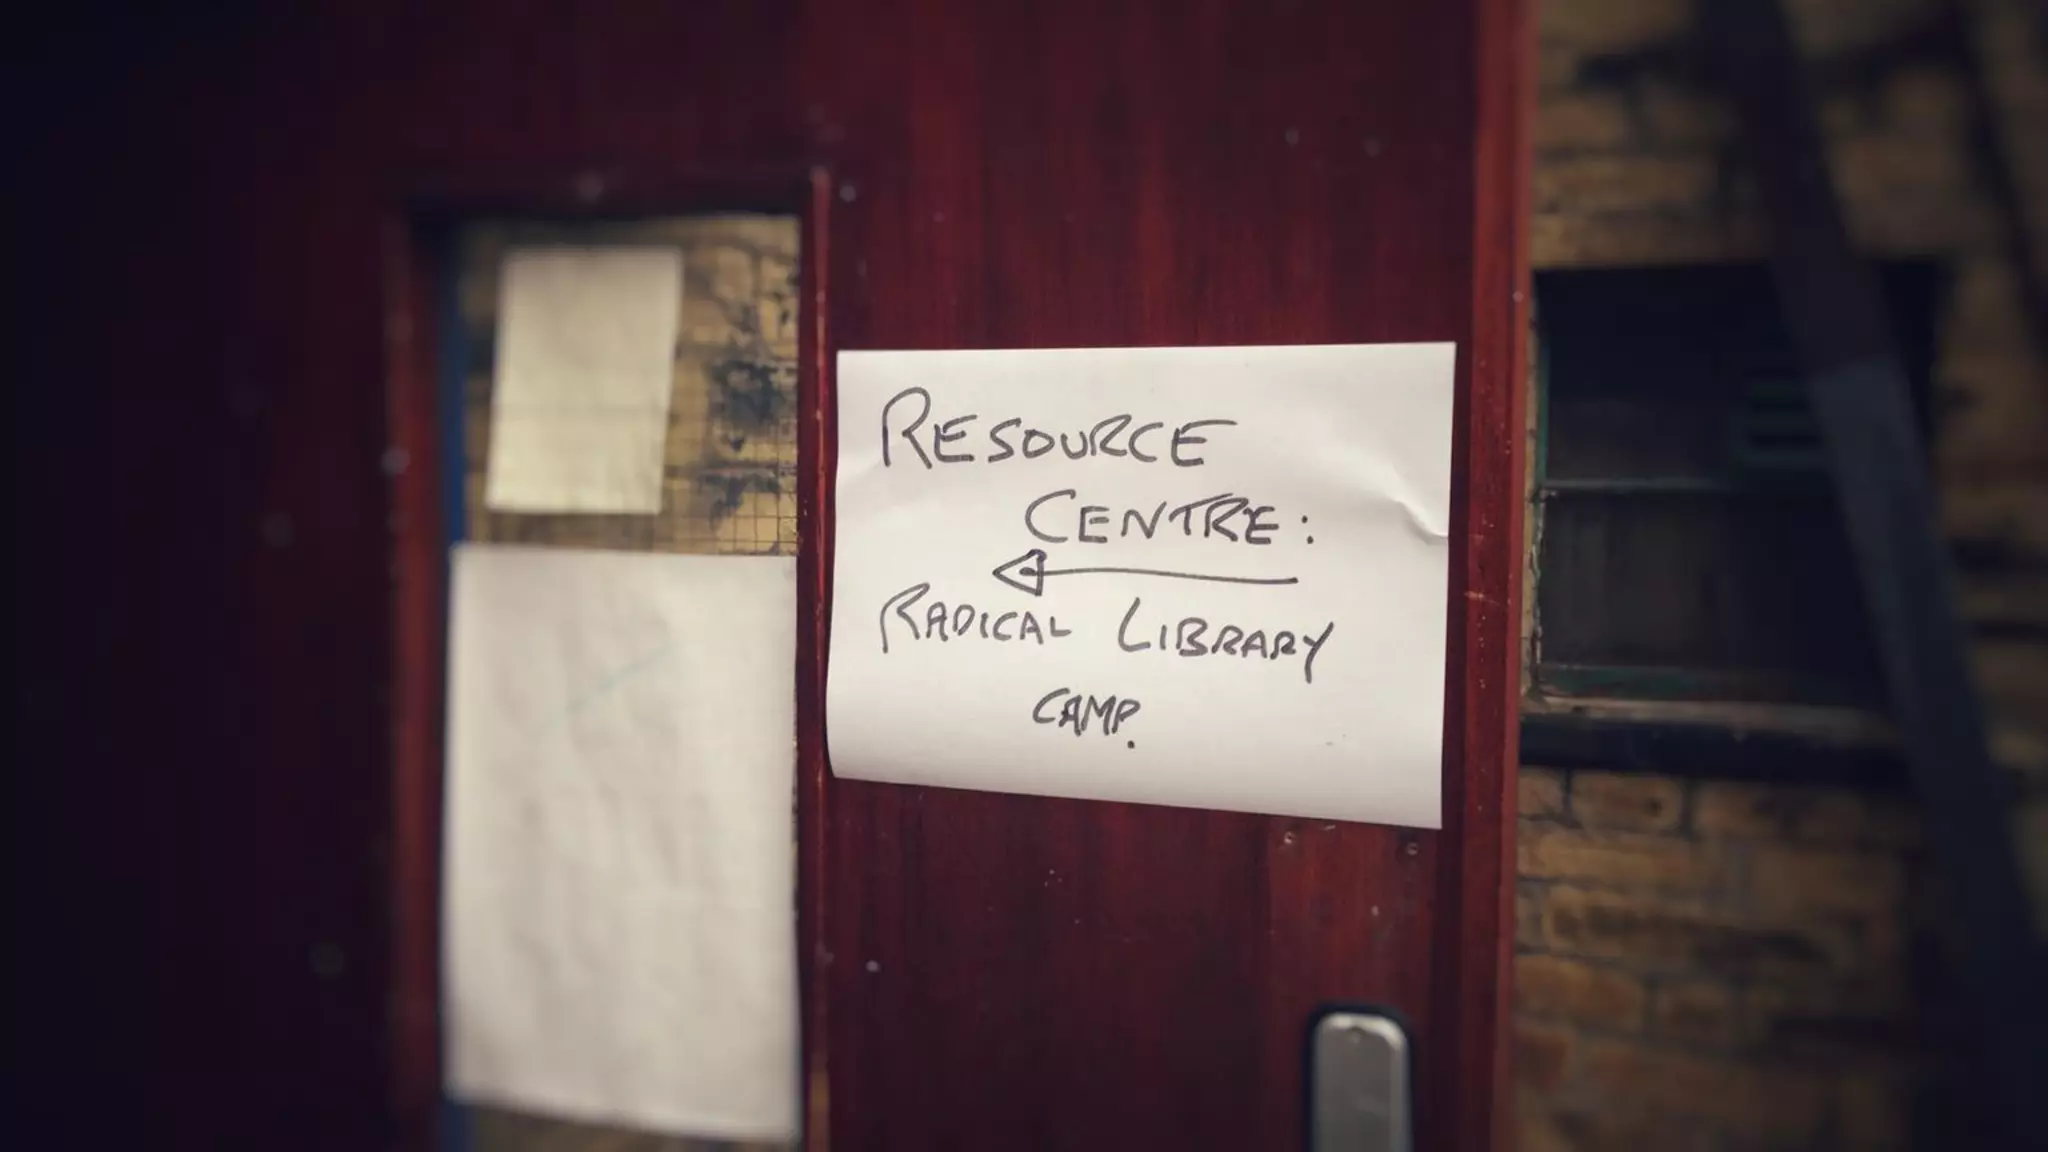 RESOURCE
CENTRE:
RADICAL LIBRARY
CAMP.